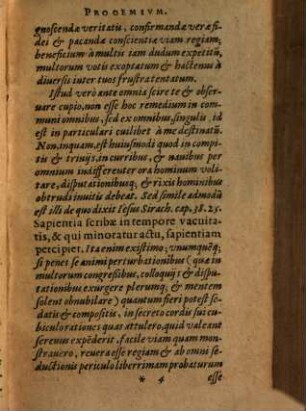 PROOEMIVM.
gnoscendæ veritatis, confirmandæ veræ fi-
dei & pacandæ conscientiæ viam regiam,
beneficium à multis tam dudum expetitũ,
multorum votis exoptatum & hactenus à
diversis inter tuos frustra tentatum.
Istud verò ante omnia scire te & obser-
vare cupio, non esse hoc remedium in com-
muni omnibus, sed ex omnibus, singulis, id
est in particulari cuilibet à me destinatũ.
Non, inquam, est huiusmodi quod in compi-
tis & triviis, in curribus, & navibus per
omnium indifferenter ora hominum volit-
tare, disputationibusq; & rixis hominibus
obtrudi invitis debeat. Sed simile admodũ
est illi de quo dixit Iesus Sirach. cap. 38. 25.
Sapientia scribæ in tempore vacuita-
tis, & qui minoratur actu, sapientiam
percipiet. Ita enim existimo; vnumquẽq;
si penes se animi perturbationibus (quæ in
multorum congressibus, colloquijs & dispu-
tationibus exurgere plerumq; & mentem
solent obnubilare) quantum fieri potest se-
datis & compositis, in secreto cordis sui cu-
biculo rationes quas attulero, quid valeant
serenus expẽderit, facile viam quam mon-
stravero, revera esse regiam & ab omni se-
ductionis periculo liberrimam probaturum
* 4 esse